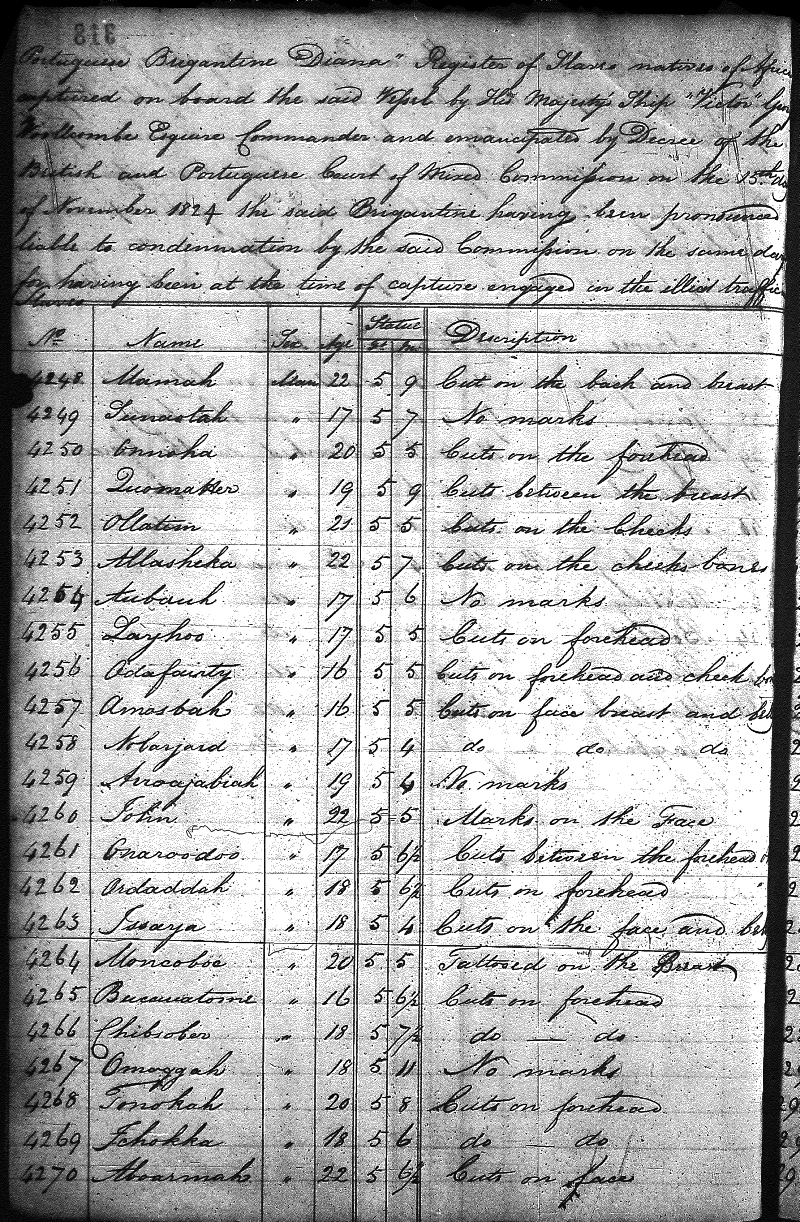 318
Portuguese Brigantine "Diana" Register of Slaves natives of Africa
captured on board the said Vessel by His Majesty's Ship "Victor"
Woollcombe Esquire Commander and emancipated by Decree of the
British and Portuguese Court of Mixed Commission on the 15th day
of November 1824 the said Brigantine having been pronounced
liable to condemnation by the said Commission on the same day
for having been at the time of capture engaged in the illicit traffic
Slaves
No Name Sex Age Stature Ft In Description
4248 Mamah Man 22 5 9 Cut on the back and breast
4249 Sunaotah " 17 5 7 No marks
4250 Onnoha " 20 5 5 Cuts on the forehead
4251 Quomatter " 19 5 9 Cuts between the breast
4252 Ollatim " 21 5 5 Cuts on the Cheeks
4253 Allasheka " 22 5 7 Cuts on the cheeks bones
4254 Aubauh " 17 5 6 No marks
4255 Layhoo " 17 5 5 Cuts on forehead
4256 Odafairty " 16 5 5 Cuts on forehead and cheek
4257 Amasbah " 16 5 5 Cuts on face breast and
4258 Nobarjard " 17 5 4 do do do
4259 Arroajabiah " 19 5 4 No marks
4260 John " 22 5 5 Marks on the Face
4261 Onaroodoo " 17 5 6½ Cuts between the forehead
4262 Ordaddah " 18 5 6½ Cuts on forehead
4263 Issaya " 18 5 4 Cuts on the face and
4264 Moncoboe " 20 5 5 Tattooed on the Breast
4265 Bucawatome " 16 5 6½ Cuts on forehead
4266 Chibsober " 18 5 7½ do — do
4267 Omaggah " 18 5 11 No marks
4268 Tonokah " 20 5 8 Cuts on forehead
4269 Ichokka " 18 5 6 do — do
4270 Aboarmah " 22 5 6½ Cuts on face